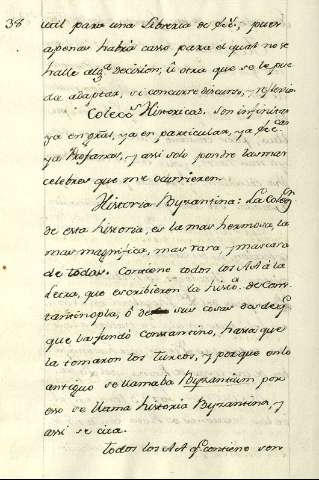 38 util para una Libreria de Ecc.ª; pues
apenas habrá casso para el qual no se
halle alg.ª decision, ú otra que se le pue
da adaptar, si concurre discurso, y reflexion
Colecs. Historicas. Son infinitas
ya en gral, ya en particular, ya Ecc.cas
ya Profanas, y assi solo pondré las mas
celebres que me ocurrieren.
Historia Byzantina: La Colecn.
de esta historia, es la mas hermosa, la
mas magnifica, mas rara, y mas cara
de todas. Contiene todos los AA. á la
Letra, que escribieron la histª. de Cons
tantinopla, ó de sus cosas desde q.e
que la fundó Constantino, hasta que
la tomaron los Turcos, y porque en lo
antiguo se llamaba Byzantium por
esso se llama historia Byzantina, y
assi se cita.
todos los AA. q.e contiene son